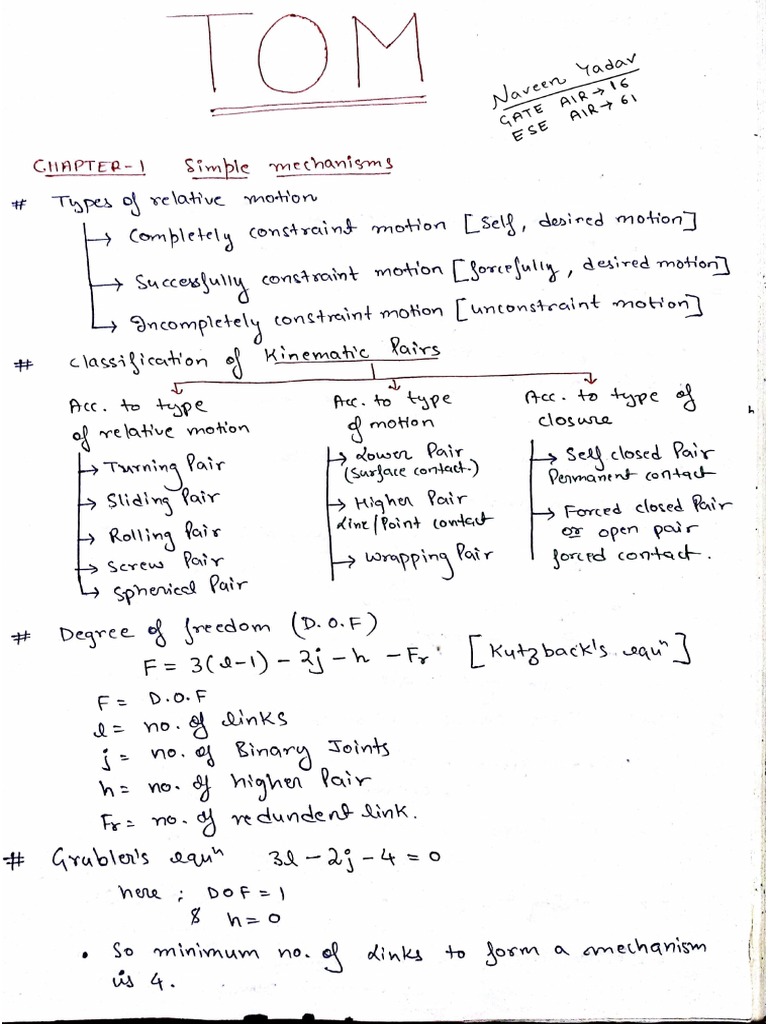 TOM
Naveen Yadav
GATE AIR → 16
ESE AIR → 61
CHAPTER-1 Simple mechanisms
# Types of relative motion
→ Completely constraint motion [Self, desired motion]
→ Successfully constraint motion [forcefully, desired motion]
→ Incompletely constraint motion [unconstraint motion]
# Classification of Kinematic Pairs
Acc. to type
of relative motion
→ Turning Pair
→ Sliding Pair
→ Rolling Pair
→ Screw Pair
→ Spherical Pair
Acc. to type
of motion
→ Lower Pair
(Surface contact.)
→ Higher Pair
Line/Point contact
→ Wrapping Pair
Acc. to type of
closure
→ Self closed Pair
Permanent contact
→ Forced closed Pair
or open pair
forced contact.
# Degree of freedom (D.O.F)
F = 3(l-1) - 2j - h - Fr [Kutzback's equⁿ]
F = D.O.F
l = no. of links
j = no. of Binary Joints
h = no. of higher Pair
Fr = no. of redundent link.
# Grubler's equⁿ 3l - 2j - 4 = 0
here ; DOF = 1
& h = 0
• So minimum no. of Links to form a mechanism
is 4.